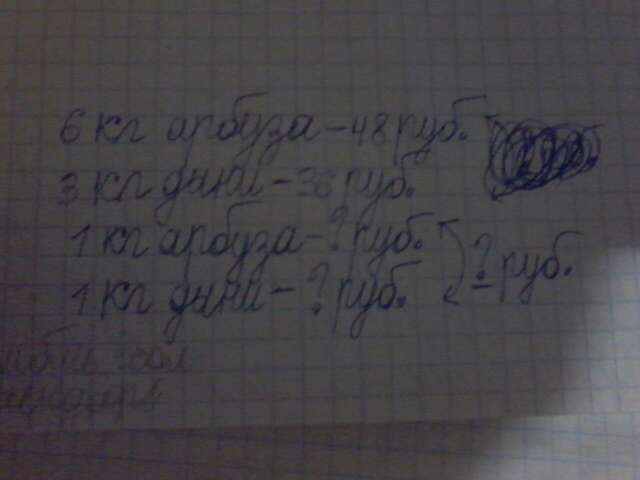 6 кг арбуза - 48 руб.
3 кг дыни - 36 руб.
1 кг арбуза - ? руб.
1 кг дыни - ? руб.
? руб.